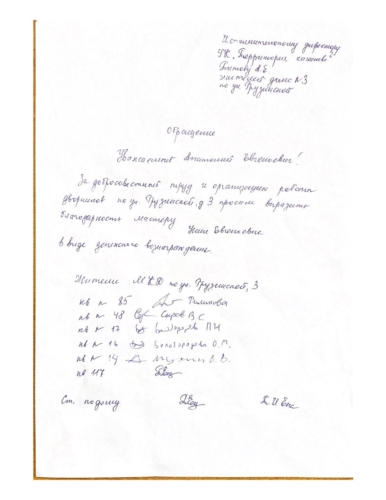 Исполнительному директору
УК "Территория комфорта"
Титову А.Е
жителей дома №3
по ул. Грузинской
Обращение
Уважаемый Анатолий Евгеньевич!
За добросовестный труд и организацию работы
дворников по ул. Грузинской, д 3 просим выразить
благодарность мастеру
Евгеньевне
в виде денежного вознаграждения.
Жители МКД по ул. Грузинской, 3
кв № 85 Филимонова
кв № 48 Сыров В С
кв № 12 П И
кв № 16 О. П.
кв № 14 В. В.
кв 117
Ст. по дому